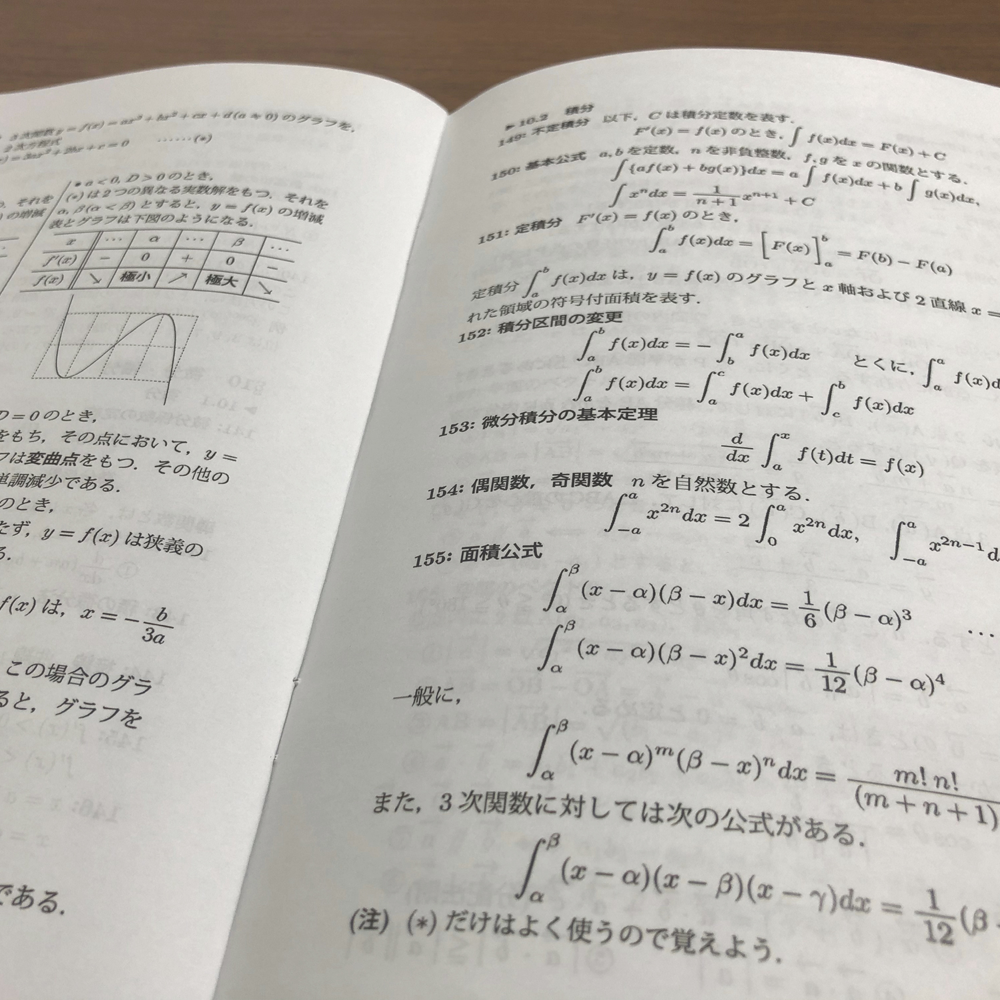 3次関数 y = f(x) = ax³ + bx² + cx + d (a ≠ 0) のグラフを,
2次方程式
) = 3ax² + 2bx + c = 0 ……(*)
• a < 0, D > 0 のとき,
それを
(*) は 2 つの異なる実数解をもつ. それを
の増減
α, β(α < β) とすると, y = f(x) の増減
表とグラフは下図のようになる.
x ⋯ α ⋯ β ⋯
f'(x) − 0 + 0 −
f(x) ↘ 極小 ↗ 極大 ↘
D = 0 のとき,
をもち, その点において, y =
フは変曲点をもつ. その他の
単調減少である.
のとき,
たず, y = f(x) は狭義の
る.
f(x) は, x = −b/3a
この場合のグラ
ると, グラフを
である.
▶ 10.2 積分
149: 不定積分 以下, C は積分定数を表す.
F'(x) = f(x) のとき, ∫ f(x)dx = F(x) + C
150: 基本公式 a, b を定数, n を非負整数, f, g を x の関数とする.
∫ {af(x) + bg(x)}dx = a ∫ f(x)dx + b ∫ g(x)dx,
∫ xⁿdx = 1/(n+1) xⁿ⁺¹ + C
151: 定積分 F'(x) = f(x) のとき,
∫ₐᵇ f(x)dx = [F(x)]ₐᵇ = F(b) − F(a)
定積分 ∫ₐᵇ f(x)dx は, y = f(x) のグラフと x 軸および 2 直線 x =
れた領域の符号付面積を表す.
152: 積分区間の変更
∫ₐᵇ f(x)dx = − ∫_b^a f(x)dx とくに, ∫ₐᵃ f(x)d
∫ₐᵇ f(x)dx = ∫ₐᶜ f(x)dx + ∫_c^b f(x)dx
153: 微分積分の基本定理
d/dx ∫ₐˣ f(t)dt = f(x)
154: 偶関数, 奇関数 n を自然数とする.
∫_{−a}^{a} x²ⁿdx = 2 ∫₀ᵃ x²ⁿdx, ∫_{−a}^{a} x²ⁿ⁻¹d
155: 面積公式
∫_α^β (x − α)(β − x)dx = 1/6 (β − α)³ ⋯
∫_α^β (x − α)(β − x)²dx = 1/12 (β − α)⁴
一般に,
∫_α^β (x − α)ᵐ(β − x)ⁿdx = m! n!/(m + n + 1)
また, 3 次関数に対しては次の公式がある.
∫_α^β (x − α)(x − β)(x − γ)dx = 1/12 (β −
(注) (*) だけはよく使うので覚えよう.